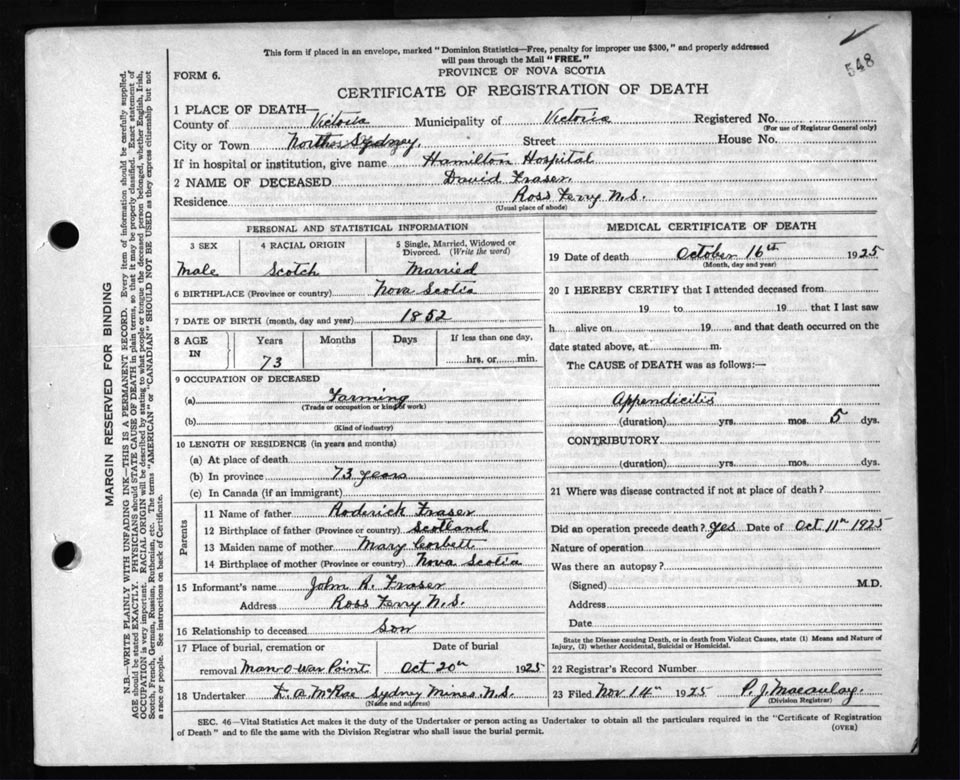 548
This form if placed in an envelope, marked "Dominion Statistics—Free, penalty for improper use $300," and properly addressed
will pass through the Mail "FREE."
FORM 6.
PROVINCE OF NOVA SCOTIA
CERTIFICATE OF REGISTRATION OF DEATH
1 PLACE OF DEATH—
County of Victoria Municipality of Victoria Registered No.
(For use of Registrar General only)
City or Town North Sydney. Street House No.
If in hospital or institution, give name Hamilton Hospital
2 NAME OF DECEASED David Fraser
Residence Ross Ferry N.S.
(Usual place of abode)
PERSONAL AND STATISTICAL INFORMATION
3 SEX 4 RACIAL ORIGIN 5 Single, Married, Widowed or
Divorced. (Write the word)
Male Scotch Married
6 BIRTHPLACE (Province or country) Nova Scotia
7 DATE OF BIRTH (month, day and year) 1852
8 AGE IN Years Months Days If less than one day,
73 hrs, or min.
9 OCCUPATION OF DECEASED
(a) Farming
(Trade or occupation or kind of work)
(b)
(Kind of industry)
10 LENGTH OF RESIDENCE (in years and months)
(a) At place of death
(b) In province 73 years
(c) In Canada (if an immigrant)
Parents
11 Name of father Roderick Fraser
12 Birthplace of father (Province or country) Scotland
13 Maiden name of mother Mary Corbett
14 Birthplace of mother (Province or country) Nova Scotia
15 Informant's name John R. Fraser
Address Ross Ferry N.S.
16 Relationship to deceased Son
17 Place of burial, cremation or Date of burial
removal Man-o-War Point Oct 20th 1925
18 Undertaker McRae Sydney Mines N.S.
(Name and address)
MEDICAL CERTIFICATE OF DEATH
19 Date of death October 16th 1925
(Month, day and year)
20 I HEREBY CERTIFY that I attended deceased from
19 to 19 that I last saw
h alive on 19 and that death occurred on the
date stated above, at m.
The CAUSE of DEATH was as follows:—
Appendicitis
(duration) yrs. mos. 5 dys.
CONTRIBUTORY
(duration) yrs. mos. dys.
21 Where was disease contracted if not at place of death?
Did an operation precede death? Yes Date of Oct 11th 1925
Nature of operation
Was there an autopsy?
(Signed) M.D.
Address
Date
State the Disease causing Death, or in death from Violent Causes, state (1) Means and Nature of
Injury, (2) whether Accidental, Suicidal or Homicidal.
22 Registrar's Record Number
23 Filed Nov 14th 1925 P. J. Macaulay.
(Division Registrar)
SEC. 46—Vital Statistics Act makes it the duty of the Undertaker or person acting as Undertaker to obtain all the particulars required in the "Certificate of Registration
of Death" and to file the same with the Division Registrar who shall issue the burial permit.
(OVER)
MARGIN RESERVED FOR BINDING
N.B.—WRITE PLAINLY WITH UNFADING INK—THIS IS A PERMANENT RECORD. Every item of information should be carefully supplied.
AGE should be stated EXACTLY. PHYSICIANS should STATE CAUSE OF DEATH in plain terms, so that it may be properly classified. Exact statement of
OCCUPATION is very important. RACIAL ORIGIN will be described by stating to what people or tongue the deceased person belonged, whether English, Irish,
Scotch, French, German, Russian, Ruthenian, etc. The terms "AMERICAN" or "CANADIAN" SHOULD NOT BE USED as they express citizenship but not
a race or people. See instructions on back of Certificate.